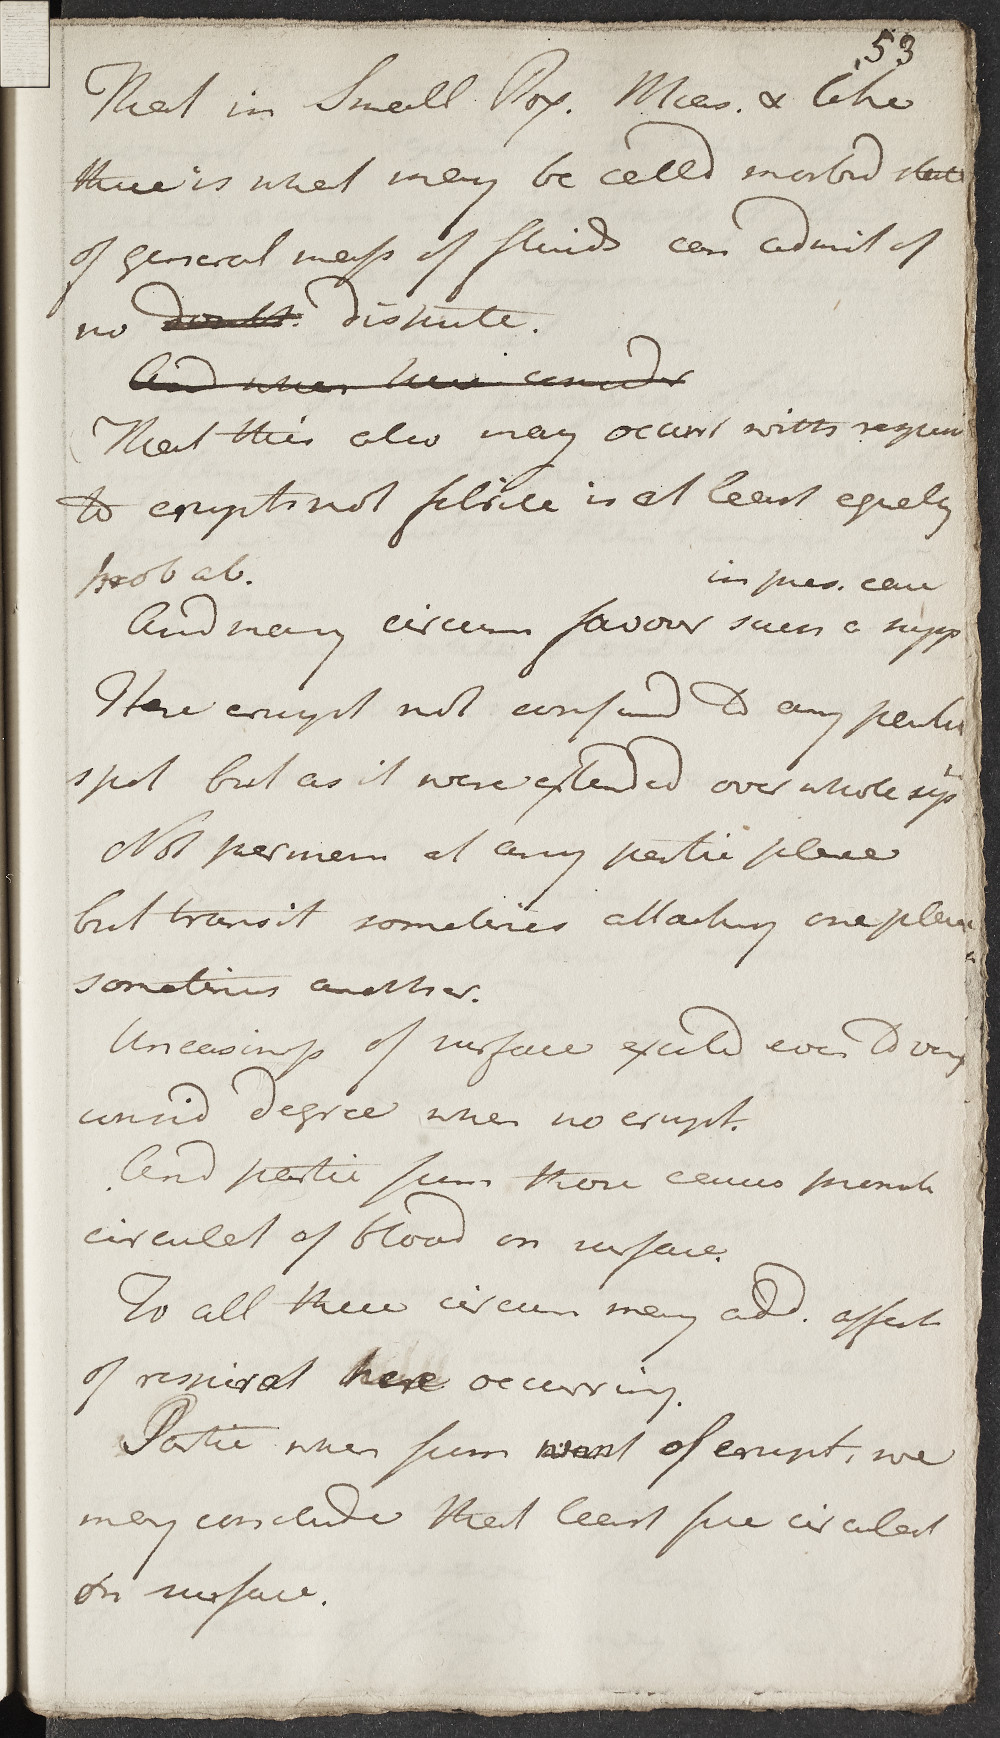 53
That in Small Pox. Meas. & like
there is what may be calld morbid state
of general mass of fluids can admit of
no doubt. dispute.
And when here consider
That this also may occur with
to erupt not febrile is at least equely
probab.
in pres. case
And many circum favour such a supp
Here erupt not confind to any partic
spot but as it were extended over whole
Not permen at any partic place
but transit sometimes attacking one place
sometimes another.
Uneasiness of surface excitd even to very
consid degree when no erupt.
And partic from those causes promote
circulat of blood on surface.
To all these circum may add. effect
of remed here occurring.
Partic when from want of erupt, we
may conclude that least free circulat
on surface.